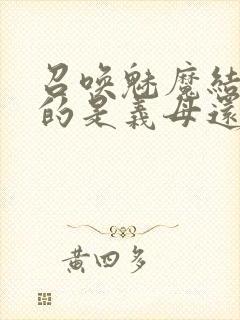 召喚魅魔結
的是義母還
黄四多